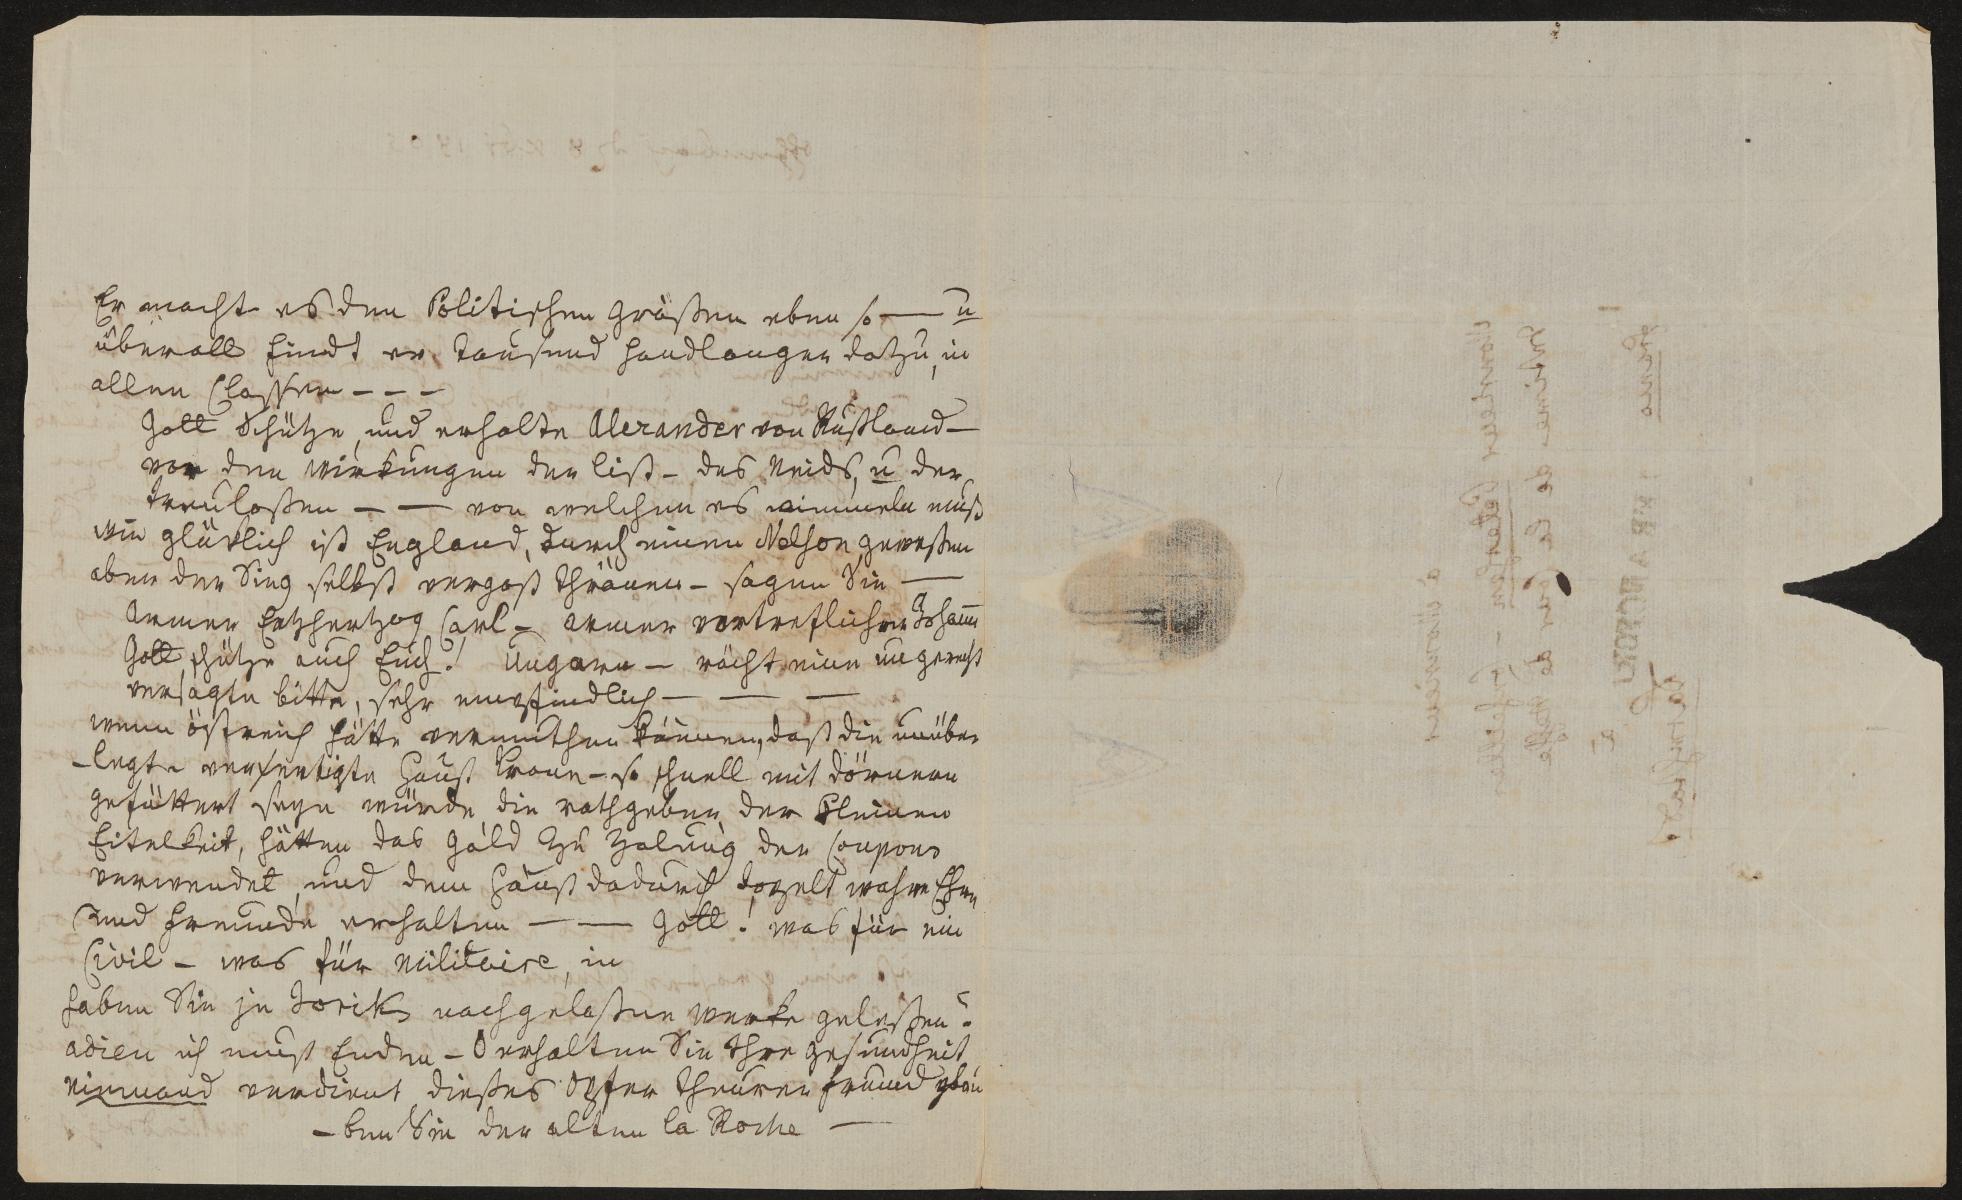 Er macht es den Politischen größen eben so — u
überall findt er tausend handlanger datzu, in
allen Classen - - -
Gott Schütze, und erhalte Alexander von Rußland —
vor den wirkungen der list — des Neids, u der
treulosen — — von welchen es wimmeln muß
wie glüklich ist England, durch einen Nelson geweßen
aber der Sieg selbst vergoß thränen — sagen Sie —
armer Ertzhertzog Carl — armer vortreflicher Johann
Gott schütze auch Euch! Ungarn — rächt eine ungerecht
versagte bitte, sehr empfindlich — — —
wenn östreich hätte vermuthen können, daß die unüber
-legte verfertigte Hauß Krone — so schnell mit dörnern
gefüttert seyn würde, die rathgeber der kleinen
Eitelkeit, hätten das Gold zu zalung der Coupons
verwendet, und dem Hauß dadurch doppelt wahre Ehre
und freunde erhalten — — Gott! was für ein
Civil — was für Militaire, in
haben Sie je Joriks nachgelaßne werke geleßen?
adieu ich muß Enden — O erhalten Sie Ihre gesundheit
niemand verdient dießes Opfer theurer freund glau
-ben Sie der alten la Roche —